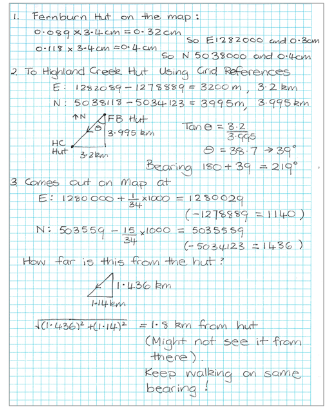 1. Fernburn Hut on the map :
0.089 x 3.4cm = 0.32cm
So E1282000 and 0.3cm
0.118 x 3.4cm = 0.4cm
So N 5038000 and 0.4cm
2 To Highland Creek Hut Using Grid References
E: 1282089 - 1278889 = 3200m, 3.2 km
N: 5038118 - 5034123 = 3995m, 3.995 km
↑N
FB Hut
θ
3.995 km
HC Hut
3.2km
Tan θ = 3.2/3.995
θ = 38.7 → 39°
Bearing 180 + 39 = 219°
3 Comes out on Map at
E: 1280000 + 1/34 x1000 = 1280029
(-1278889 = 1140)
N: 503559 - 15/34 x1000 = 5035559
(-5034123 = 1436)
How far is this from the hut?
1.436 km
1.14km
√(1.436)² + (1.14)² = 1.8 km from hut
(Might not see it from
there).
Keep walking on same
bearing!